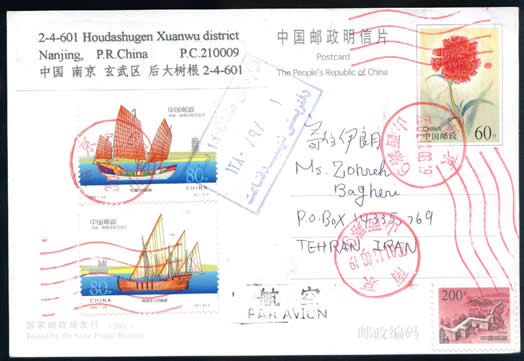 2-4-601 Houdashugen Xuanwu district
Nanjing, P.R.China P.C.210009
中国 南京 玄武区 后大树根 2-4-601
中国邮政明信片
Postcard
The People's Republic of China
CHINA
中国邮政
60分
中国邮政
80分
CHINA
中国邮政
80分
CHINA
寄伊朗
Ms. Zohreh
Bagheri
P.O.Box 14335, 769
TEHRAN, IRAN
航空
PAR AVION
200分
中国邮政
国家邮政局发行
Issued by the State Postal Bureau
邮政编码